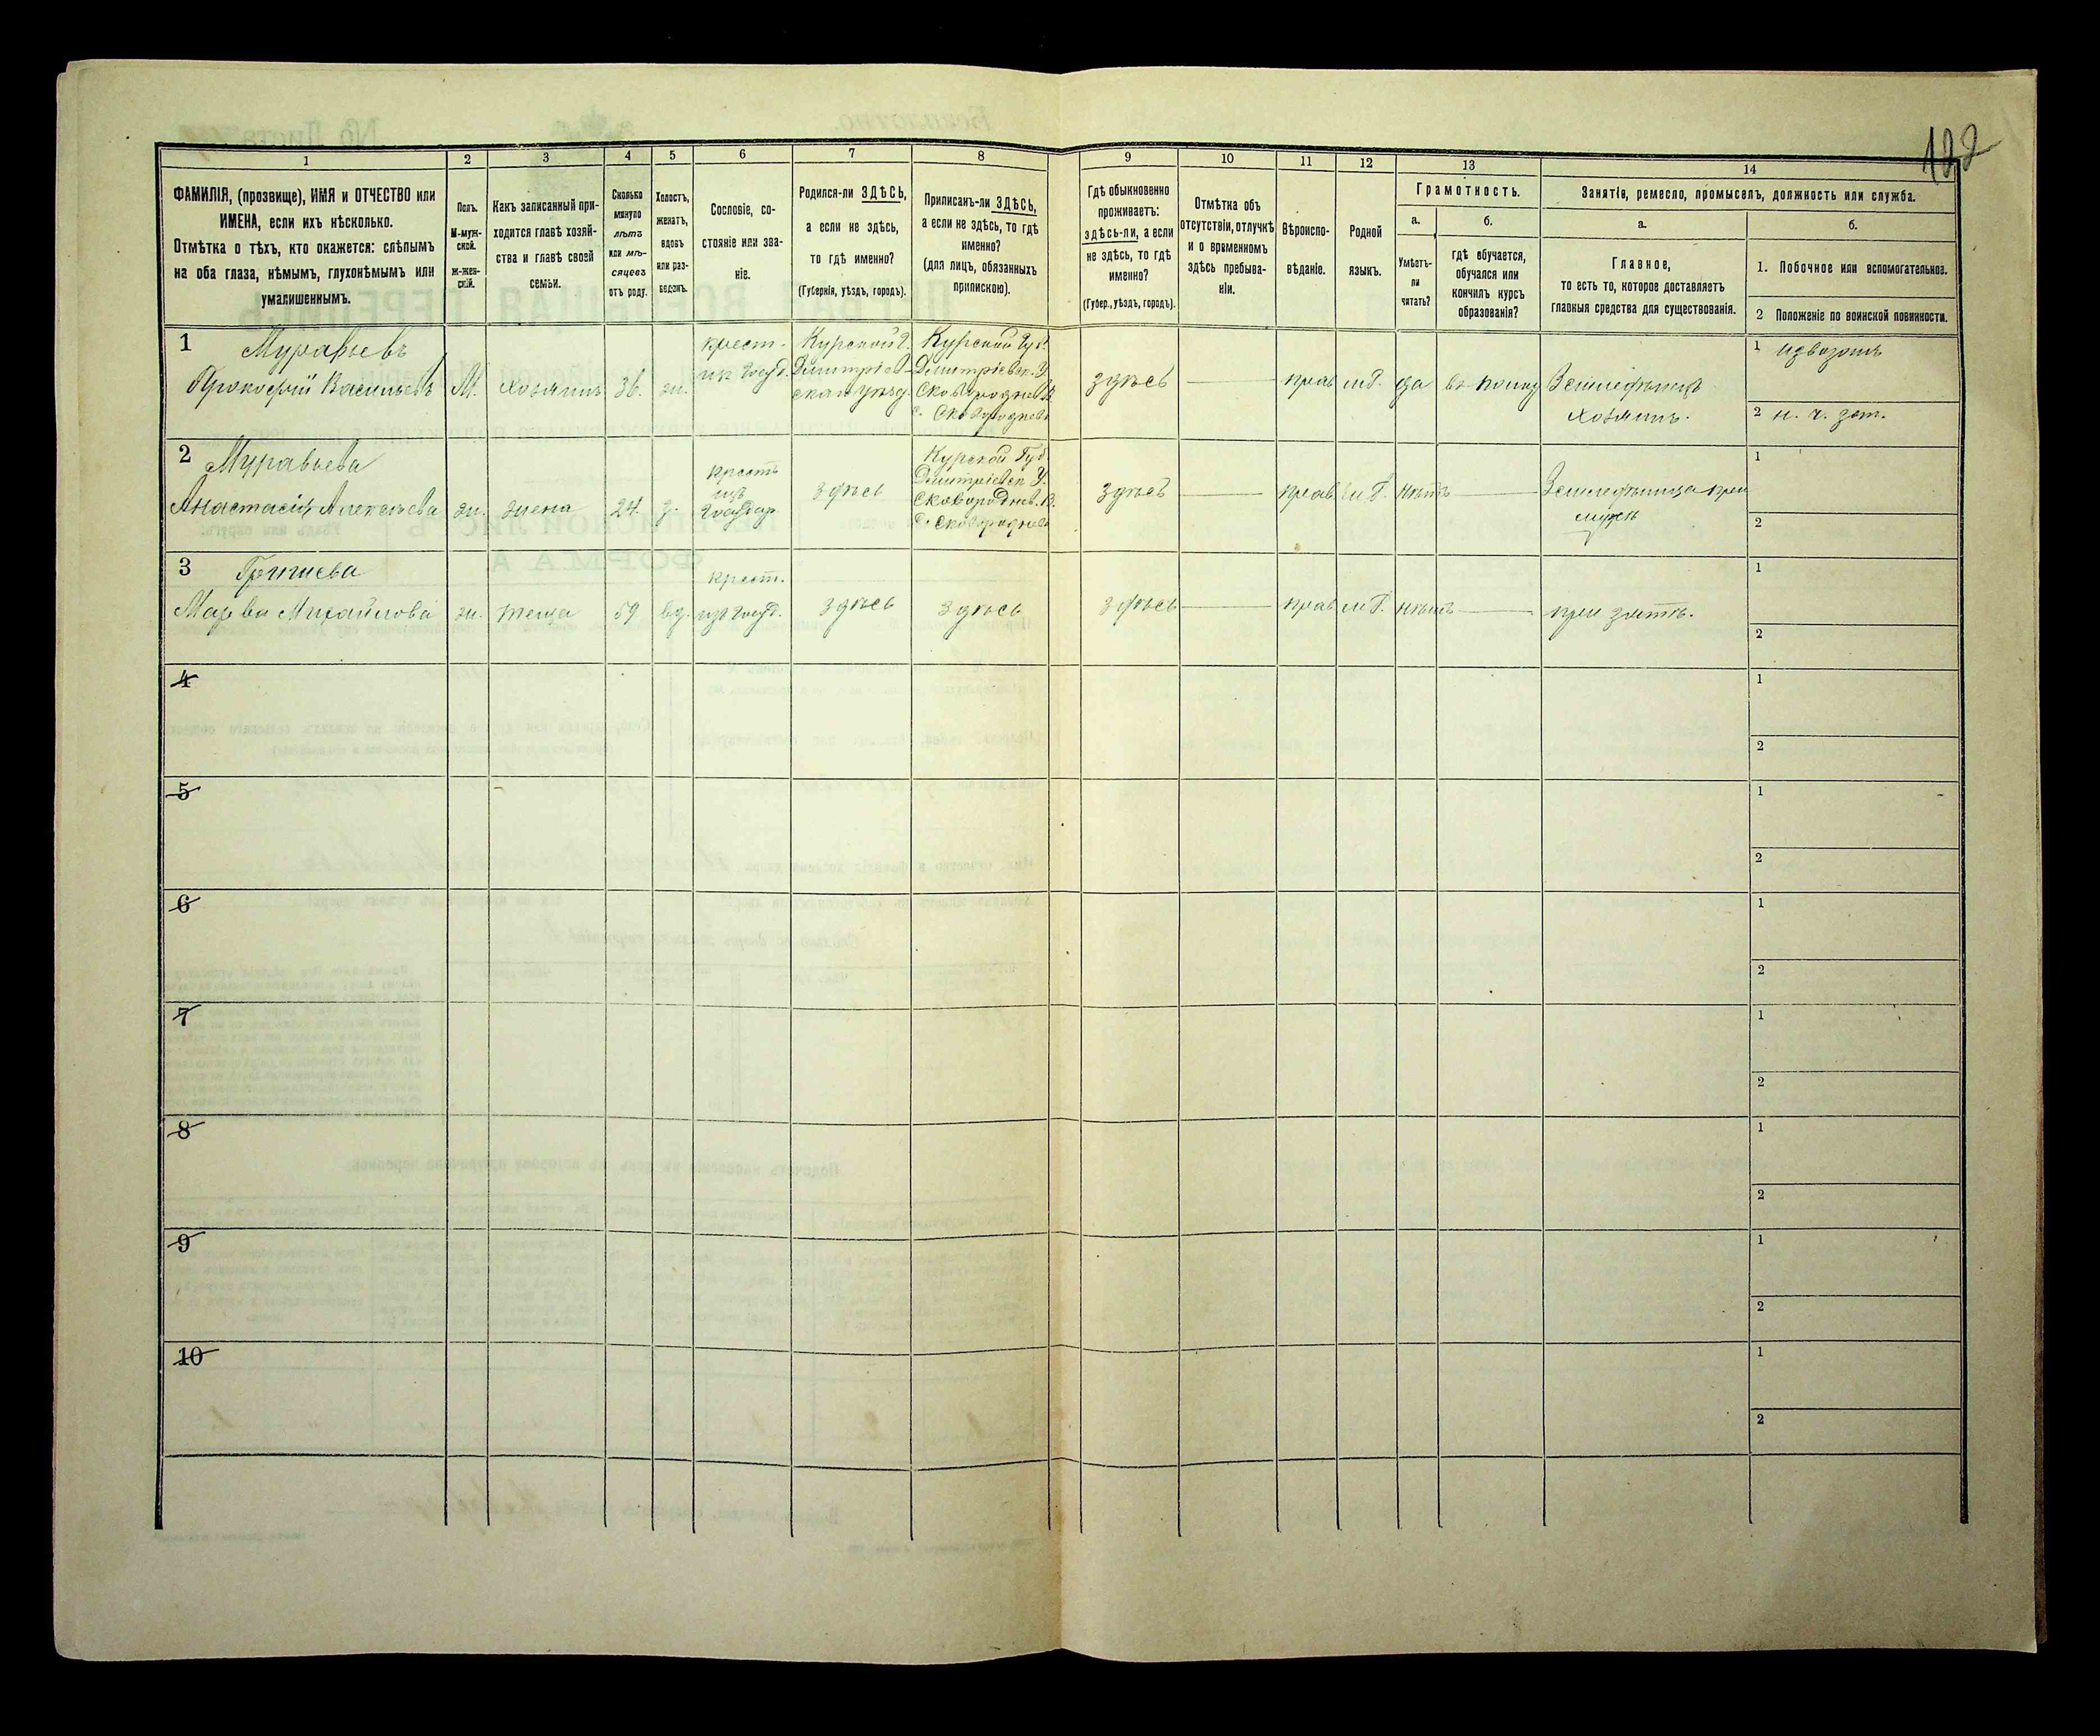 122
1 2 3 4 5 6 7 8 9 10 11 12 13 14
ФАМИЛІЯ, (прозвище), ИМЯ и ОТЧЕСТВО или
ИМЕНА, если ихъ нѣсколько.
Отмѣтка о тѣхъ, кто окажется: слѣпымъ
на оба глаза, нѣмымъ, глухонѣмымъ или
умалишеннымъ.
Полъ.
М-муж-
ской.
Ж-жен-
скій.
Какъ записанный при-
ходится главѣ хозяй-
ства и главѣ своей
семьи.
Сколько
минуло
лѣтъ
или мѣ-
сяцевъ
отъ роду.
Холостъ,
женатъ,
вдовъ
или раз-
веденъ.
Сословіе, со-
стояніе или зва-
ніе.
Родился-ли ЗДѢСЬ,
а если не здѣсь,
то гдѣ именно?
(Губернія, уѣздъ, городъ).
Приписанъ-ли ЗДѢСЬ,
а если не здѣсь, то гдѣ
именно?
(для лицъ, обязанныхъ
припискою).
Гдѣ обыкновенно
проживаетъ:
здѣсь-ли, а если
не здѣсь, то гдѣ
именно?
(Губер., уѣздъ, городъ).
Отмѣтка объ
отсутствіи, отлучкѣ
и о временномъ
здѣсь пребыва-
ніи.
Вѣроиспо-
вѣданіе.
Родной
языкъ.
Грамотность.
а.
Умѣетъ-
ли
читать?
б.
гдѣ обучается,
обучался или
кончилъ курсъ
образованія?
Занятія, ремесло, промыселъ, должность или служба.
а.
Главное,
то есть то, которое доставляетъ
главныя средства для существованія.
б.
1. Побочное или вспомогательное.
2 Положеніе по воинской повинности.
1 Муравьевъ
Прокофій Васильевъ
М.
Хозяинъ
36.
ж.
крест.
из Госуд.
Курской г.
Димитріев-
скаго уѣзд.
Курской Губ.
Димитріевск. У.
Сковороднев. В.
с. Сковороднев
здѣсь
прав
мГ.
да
Земледѣлецъ
хозяинъ.
1 извозомъ
2 н. ч. зап.
2 Муравьева
Анастасія Алексѣева
ж.
жена
24.
з.
крест
изъ
Государ
здѣсь
Курской Губ.
Димитріевск У.
Сковороднев. В.
с. Сковороднев
здѣсь
прав
мГ.
нѣтъ
Земледѣлица при
мужѣ
1
2
3
Марва Михайлова
ж.
теща
59
вд.
крест.
изъ Госуд.
здѣсь
здѣсь
здѣсь
прав
мГ.
нѣтъ
при зятѣ.
1
2
4
1
2
5
1
2
6
1
2
7
1
2
8
1
2
9
1
2
10
1
2